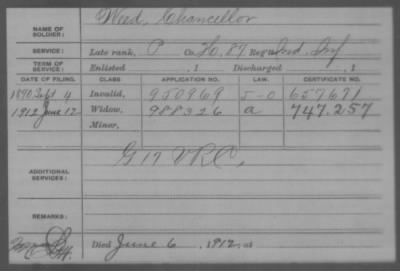 Weed, Chancellor
NAME OF SOLDIER:
SERVICE: Late rank, P Co. H, 87 Reg't Ind. Inf
TERM OF SERVICE: Enlisted , 1 Discharged , 1
DATE OF FILING. CLASS. APPLICATION NO. LAW. CERTIFICATE NO.
1890 Sept 4 Invalid, 950969 5-0 657671
1912 June 12 Widow, 988326 a 747.257
Minor,
G 17 VRC,
ADDITIONAL SERVICES:
REMARKS:
Died June 6, 1912, at